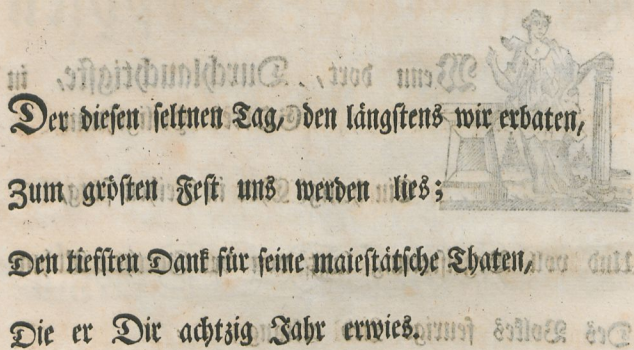 Der diesen seltnen Tag, den längstens wir erbaten,
Zum grösten Fest uns werden lies;
Den tiefsten Dank für seine maiestätsche Thaten,
Die er Dir achtzig Jahr erwies.